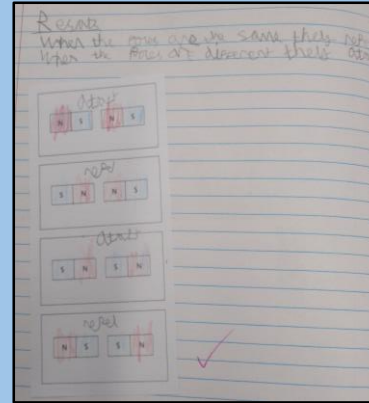 Results
When the poles are the same they repe
When the poles are different they attr
attract
N S N S
repel
S N N S
attract
S N S N
repel
N S S N